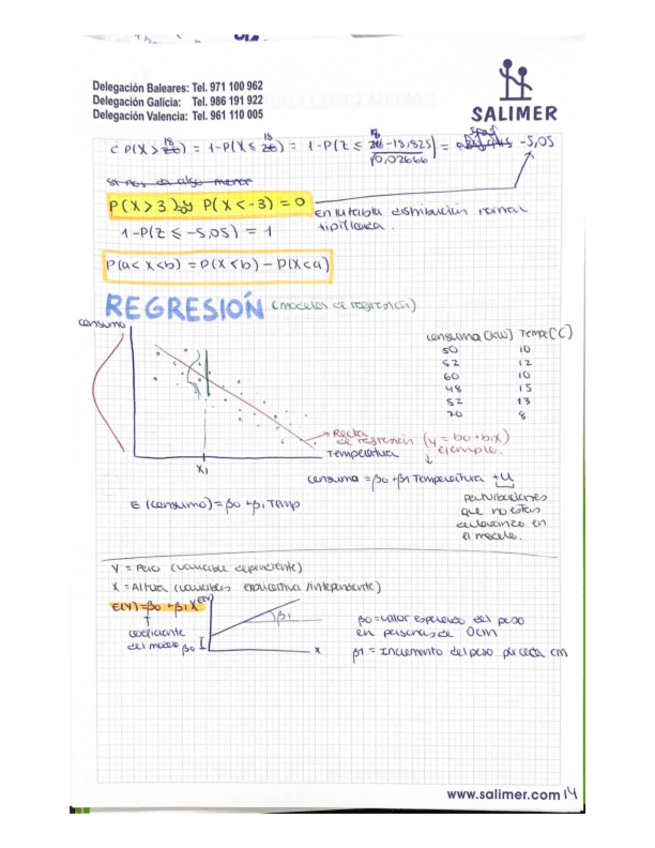 Delegación Baleares: Tel. 971 100 962
Delegación Galicia: Tel. 986 191 922
Delegación Valencia: Tel. 961 110 005
SALIMER
c P(X > 18) = 1-P(X ≤ 18) = 1-P(Z ≤ 18-18,825 / √0,02666) = -5,05
si nos da algo menor
P(X>3) y P(X<-3) = 0
En la tabla distribución normal
tipificada.
1-P(Z ≤ -5,05) = 1
P(a<X<b) = P(X<b) - P(X<a)
REGRESIÓN (modelos de regresión)
consumo
consumo (kW) Temp(°C)
50 10
52 12
60 10
48 15
52 13
70 8
Recta
de regresión (y = b0+b1x)
ejemplo.
Temperatura
X1
consumo = β0 + β1 Temperatura + U
E (consumo) = β0 + β1 Temp
perturbaciones
que no están
en
el modelo.
Y = Peso (variable dependiente)
X = Altura (variables explicativa / independiente)
E(Y) = β0 + β1 X
E(Y)
β1
coeficiente
del modelo
β0
X
β0 = valor esperado del peso
en personas de 0cm
β1 = Incremento del peso por cada cm
www.salimer.com 14